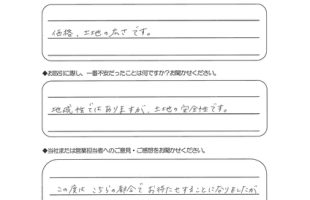 価格、土地の広さです。
◆お取引に際し、一番不安だったことは何ですか？お聞かせください。
地域性ではありますが、土地の安全性です。
◆当社または営業担当者へのご意見・ご感想をお聞かせください。
この度は こちらの都合で お待たせすることになりましたが